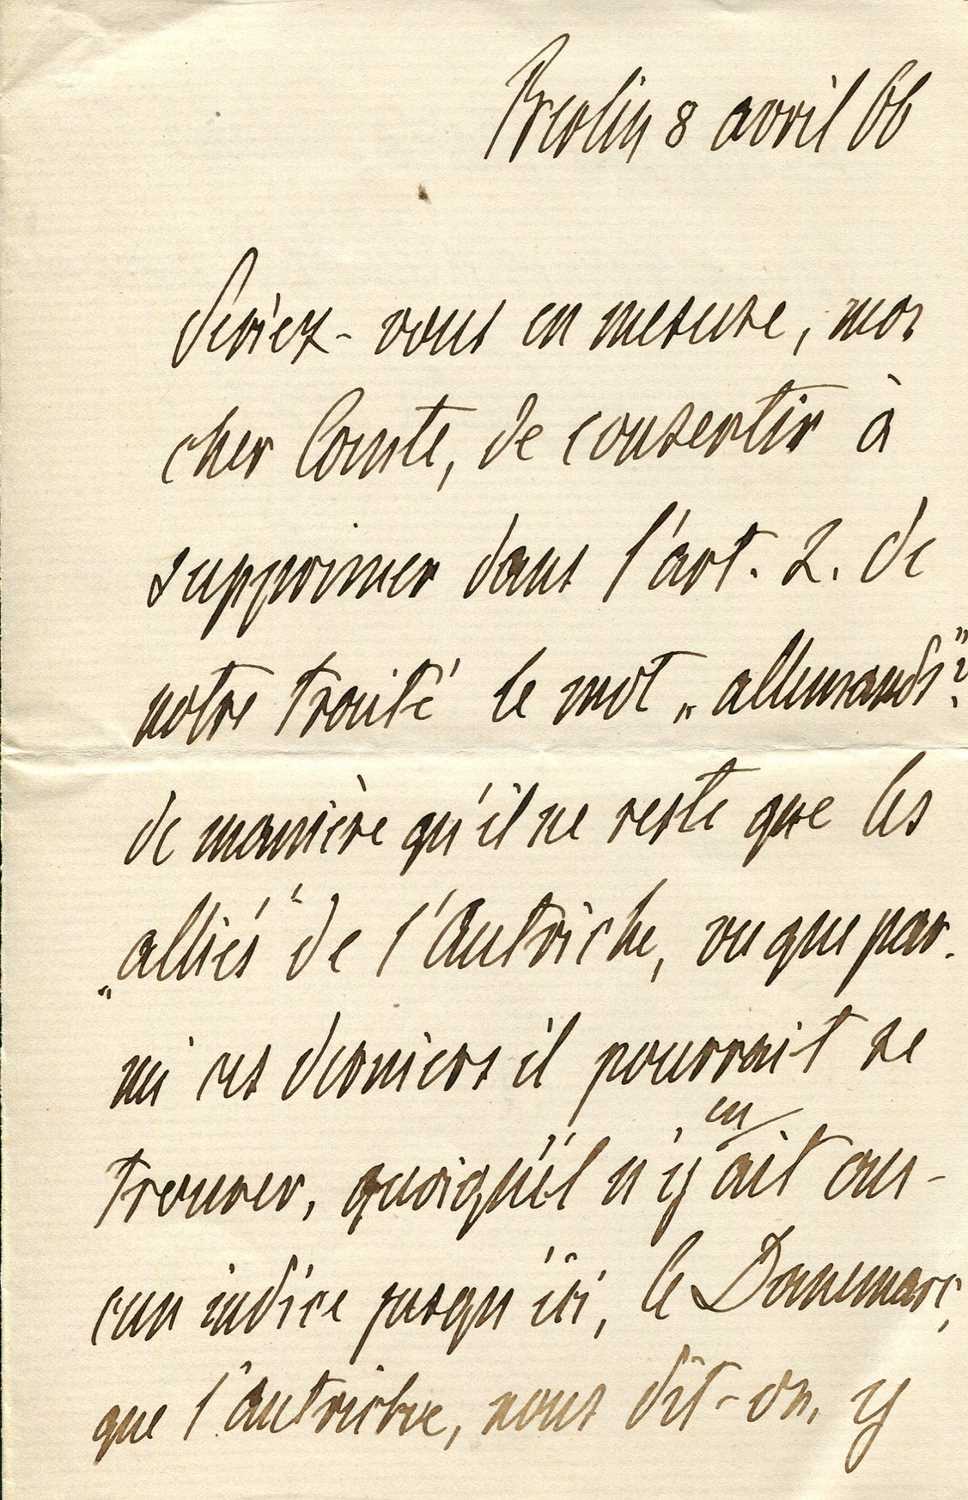 Berlin 8 avril 66
Seriez-vous en mesure, mon
cher Comte, de consentir à
supprimer dans l'art. 2. de
notre traité le mot „allemands"?
de manière qu'il ne reste que les
„alliés" de l'Autriche, vu que par-
mi ces derniers il pourrait se
trouver, quoiqu'il n'y en ait au-
cun indice jusqu'ici, le Danemarc,
que l'Autriche, nous dit-on, y